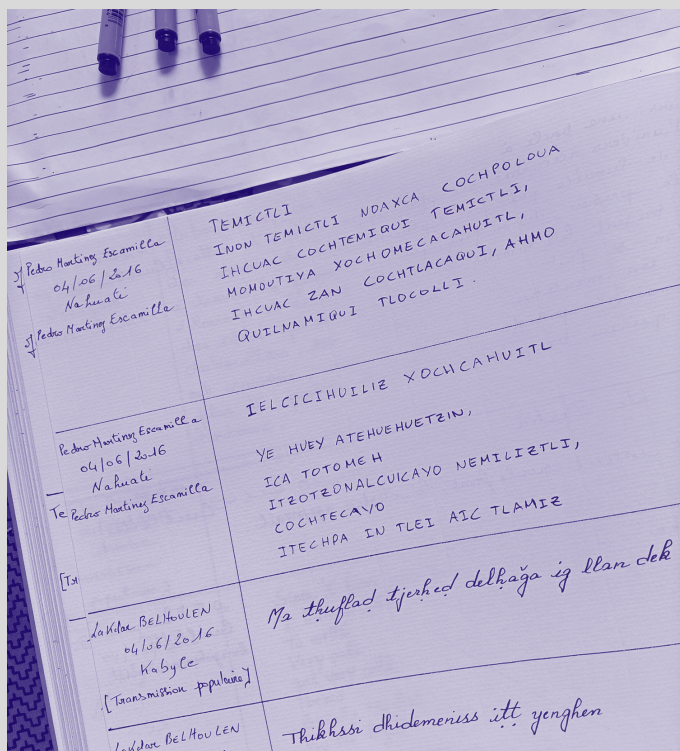 Pedro Martinez Escamilla
04/06/2016
Nahuatl
Pedro Martinez Escamilla
TEMICTLI
INON TEMICTLI NOAXCA COCHPOLOUA
IHCUAC COCHTEMIQUI TEMICTLI,
MOMOUTIYA XOCHOMECACAHUITL,
IHCUAC ZAN COCHTLACAQUI, AHMO
QUILNAMIQUI TLOCOLLI.
Pedro Martinez Escamilla
04/06/2016
Nahuatl
Pedro Martinez Escamilla
IELCICIHUILIZ XOCHCAHUITL
YE HUEY ATEHUEHUETZIN,
ICA TOTOMEH
ITZOTZONALCUICAYO NEMILIZTLI,
COCHTECAYO
ITECHPA IN TLEI AIC TLAMIZ
Te
[Tr
Lakdar BELHOULEN
04/06/2016
Kabyle
[Transmission populaire]
Ma thuflaḍ tjerheḍ delḥağa ig llan dek
Lakdar BELHOULEN
Thikhssi dhidemeniss itt yenghen